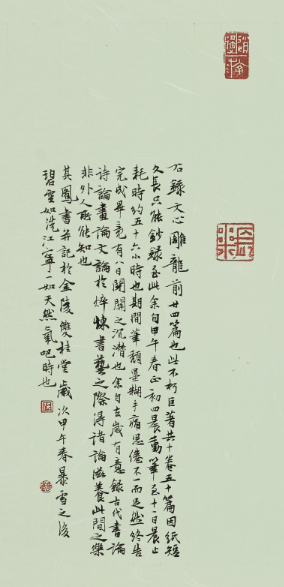 右錄文心雕龍前廿四篇也此不朽巨著共十卷五十篇因紙短
文長只能鈔錄至此余自甲午春正初四晨動筆至十日晨止
耗時約五十六小時也期間筆頹墨糊手痛思倦不一而足然終告
完成畢竟有八日閉關之沉潛也余自去歲有意錄古代書論
詩論畫論文論於焠煉書藝之際得諸論滋養此間之樂
非外人所能知也
其鳳書并記於金陵雙桂堂歲次甲午春暴雪之後
碧空如洗江寧一如天然氧吧時也